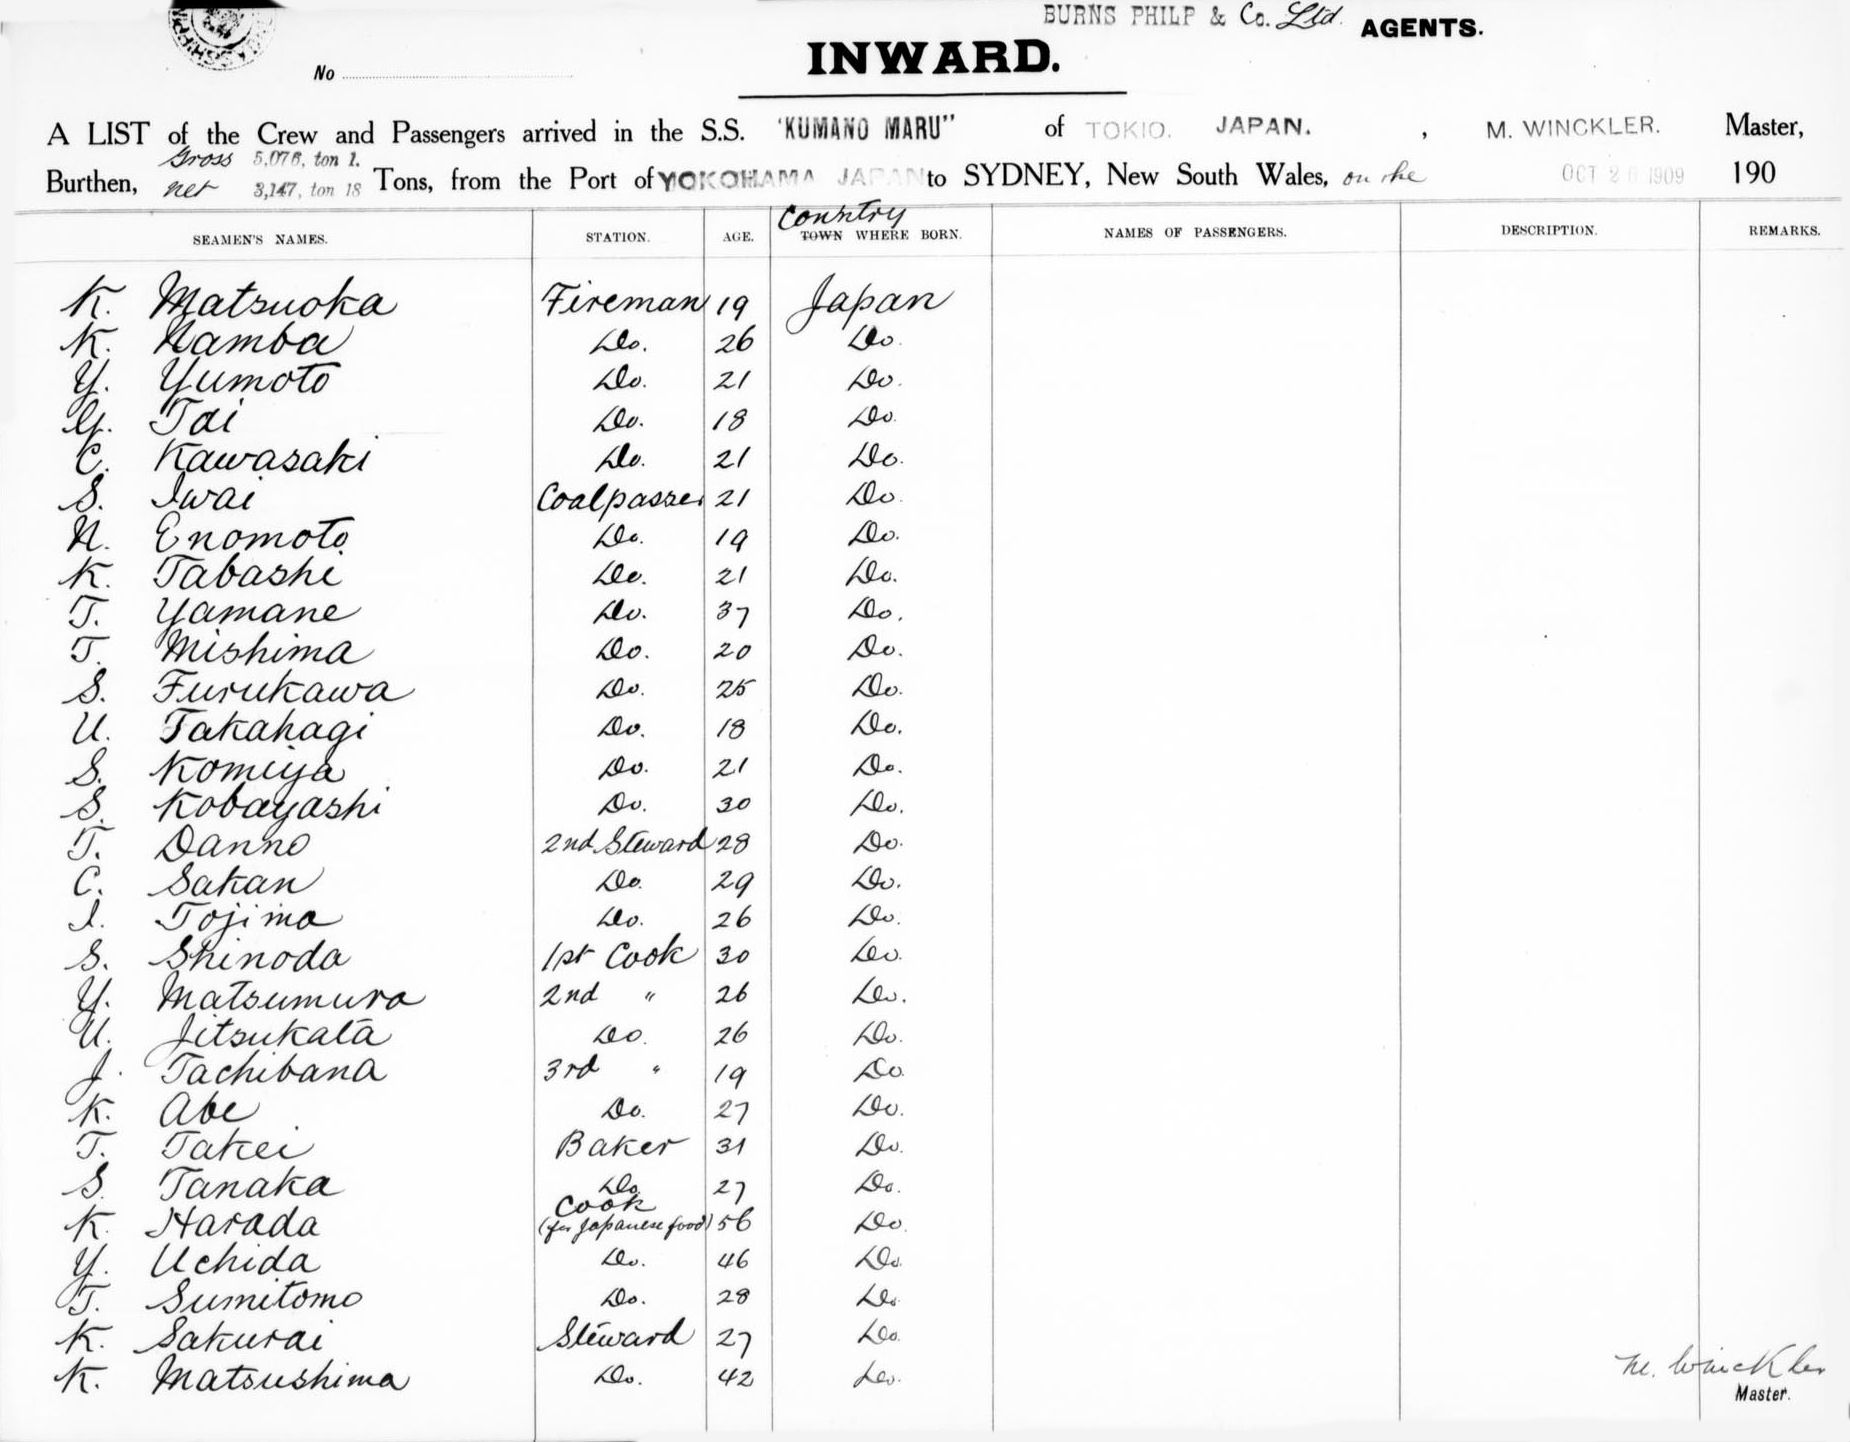 BURNS PHILP & Co. Ltd. AGENTS.
No
INWARD.
A LIST of the Crew and Passengers arrived in the S.S. "KUMANO MARU" of TOKIO. JAPAN. , M. WINCKLER. Master,
Gross 5,076, ton 1.
Burthen, net 3,147, ton 18 Tons, from the Port of YOKOHAMA JAPAN to SYDNEY, New South Wales, on the OCT 2 1909 190
Country
SEAMEN'S NAMES. STATION. AGE. TOWN WHERE BORN. NAMES OF PASSENGERS. DESCRIPTION. REMARKS.
K. Matsuoka Fireman 19 Japan
K. Namba Do. 26 Do.
Y. Yumoto Do. 21 Do.
G. Tai Do. 18 Do.
C. Kawasaki Do. 21 Do.
S. Iwai Coalpasser 21 Do.
N. Enomoto Do. 19 Do.
K. Tabashi Do. 21 Do.
T. Yamane Do. 37 Do.
T. Mishima Do. 20 Do.
S. Furukawa Do. 25 Do.
U. Takahagi Do. 18 Do.
S. Komiya Do. 21 Do.
S. Kobayashi Do. 30 Do.
T. Danno 2nd Steward 28 Do.
C. Sakan Do. 29 Do.
I. Tojima Do. 26 Do.
S. Shinoda 1st Cook 30 Do.
Y. Matsumura 2nd " 26 Do.
U. Jitsukata Do. 26 Do.
J. Tachibana 3rd " 19 Do.
K. Abe Do. 27 Do.
T. Takei Baker 31 Do.
S. Tanaka Do. 27 Do.
Cook
K. Harada (for Japanese food) 56 Do.
Y. Uchida Do. 46 Do.
T. Sumitomo Do. 28 Do.
K. Sakurai Steward 27 Do.
K. Matsushima Do. 42 Do.
M. Winckler
Master.